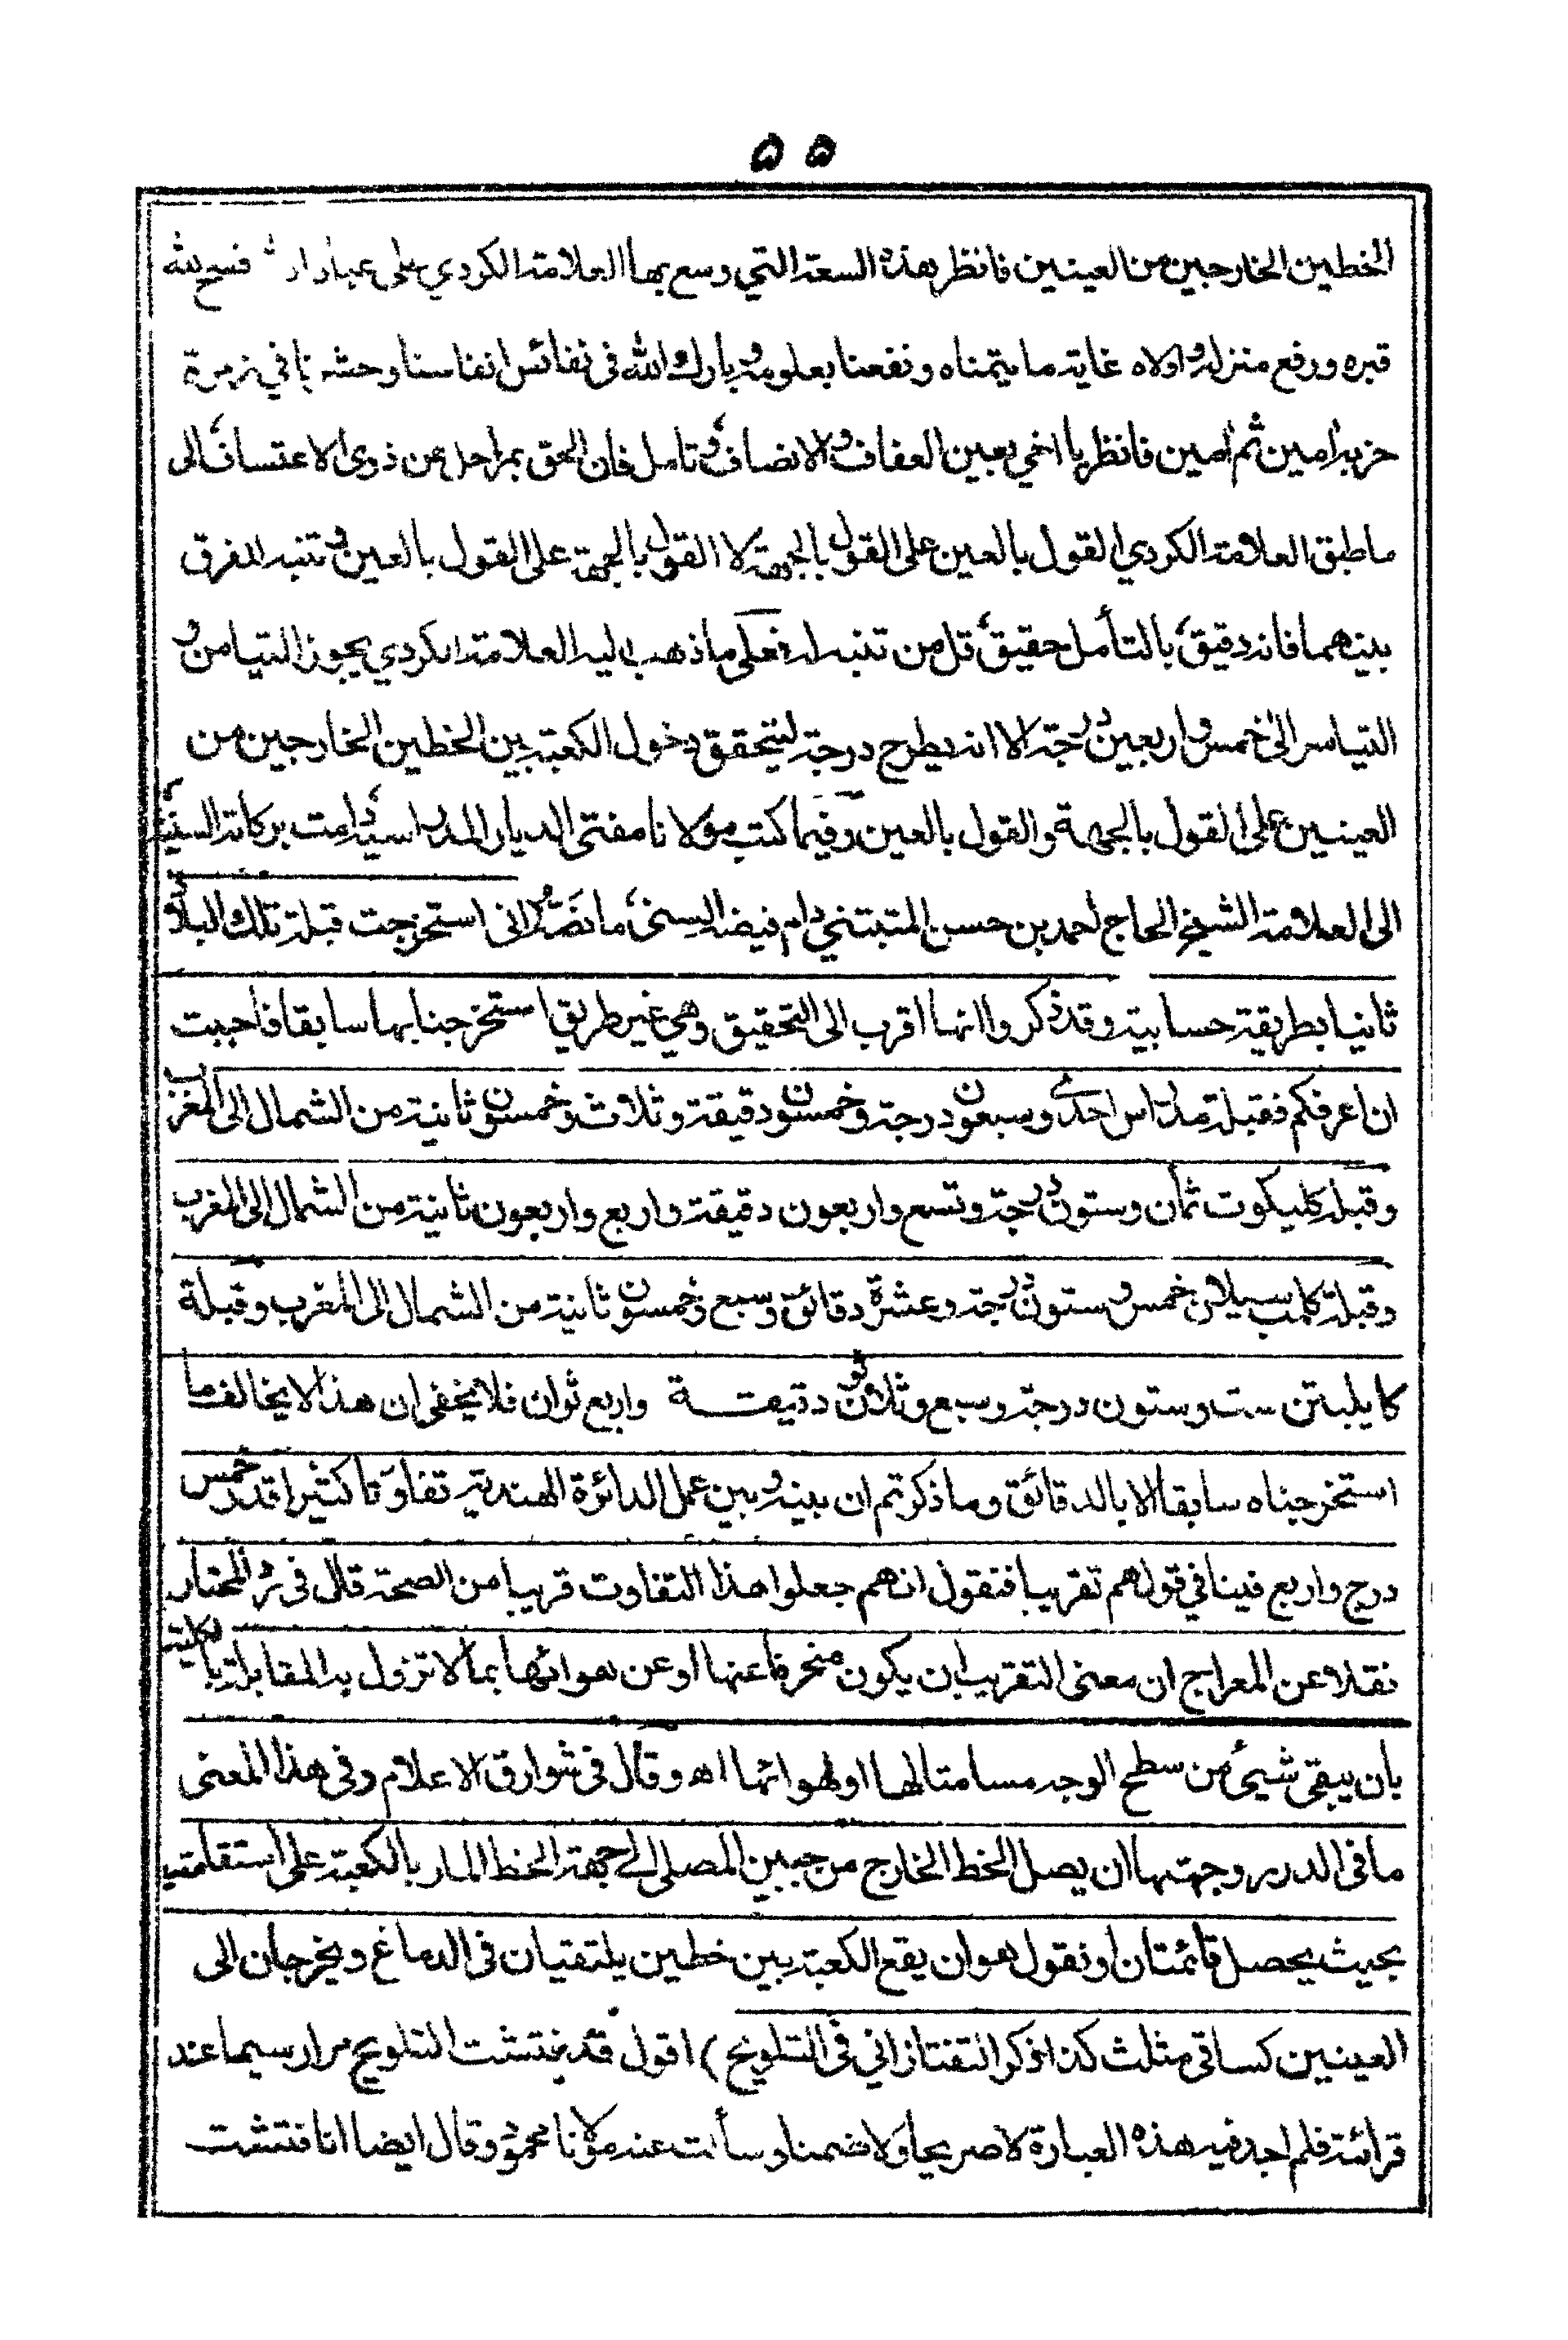 ٥٥
الخطين الخارجين من العينين فانظر بهذه السعة التي وسع بها العلامة الكردي على عبارا فسح الله
قبره ورفع منزله واولاه غاية ما يتمناه ونفعنا بعلومه وبارك الله فى نفائس انفاسنا وحشرنا في زمرة
حزبه امين ثم امين فانظر يا اخي بعين العفاف والانصاف وتامل فان الحق بمراحل عن ذوى الاعتساف الى
ما طبق العلامة الكردي القول بالعين على القول بالجهة لا القول بالجهة على القول بالعين وتنبه الفرق
بينهما فانه دقيق بالتأمل حقيق قل من تنبه له فعلى ما ذهب اليه العلامة الكردي يجوز التيامن و
التياسر الى خمس واربعين درجة الا انه يطرح درجة ليتحقق دخول الكعبة بين الخطين الخارجين من
العينين على القول بالجهة والقول بالعين وفيما كتب مولانا مفتى الديار المدراسية دامت بركاته السنية
الى العلامة الشيخ الحاج احمد بن حسن المتبتني دام فيضه السنى ما نصه انى استخرجت قبلة تلك البلاد
ثانيا بطريقة حسابية وقد ذكروا انها اقرب الى التحقيق وهي غير طريق استخرجنا بها سابقا فاحببت
ان اعرفكم فقبلة مدراس احدى وسبعون درجة وخمسون دقيقة وثلاث وخمسون ثانية من الشمال الى المغرب
وقبلة كليكوت ثمان وستون درجة وتسع واربعون دقيقة واربع واربعون ثانية من الشمال الى المغرب
وقبلة كلمب سيلان خمس وستون درجة وعشرة دقائق وسبع وخمسون ثانية من الشمال الى المغرب وقبلة
كايلبتن ست وستون درجة وسبع وثلاثون دقيقة واربع ثوان فلا يخفى ان هذا لا يخالف ما
استخرجناه سابقا الا بالدقائق وما ذكرتم ان بينه وبين عمل الدائرة الهندية تفاوتا كثيرا قدر خمس
درج واربع فينا في قولهم تقريبا فنقول انهم جعلوا هذا التفاوت قريبا من الصحة قال فى رد المحتار
نقلا عن المعراج ان معنى التقريب ان يكون منحرفا عنها او عن هوائها بما لا تزول به المقابلة بالكلية
بان يبقى شيئ من سطح الوجه مسامتا لها او لهوائها اه وقال فى شوارق الاعلام وفى هذا المعنى
ما فى الدرر وجهتها ان يصل الخط الخارج من جبين المصلى الى جهة الخط المار بالكعبة على استقامته
بحيث يحصل قائمتان او نقول هو ان يقع الكعبة بين خطين يلتقيان فى الدماغ ويخرجان الى
العينين كساقى مثلث كذا ذكر التفتازاني فى التلويح) اقول قد فتشت التلويح مرار سيما عند
قرائته فلم اجد فيه هذه العبارة لا صريحا ولا ضمنا وسألت عنه مولانا محمود وقال ايضا انا فتشت